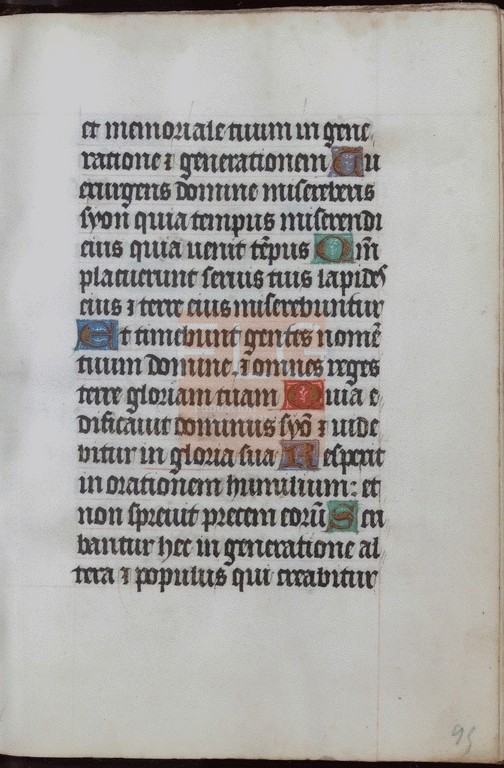 et memoriale tuum in gene
ratione ⁊ generationem Tu
exurgens domine misereberis
syon quia tempus miserendi
eius quia uenit te̅pus Qm̅
placuerunt seruis tuis lapides
eius ⁊ terre eius miserebuntur
Et timebunt gentes nome̅
tuum domine. ⁊ omnes reges
terre gloriam tuam Quia e
dificauit dominus syo̅ ⁊ uide
bitur in gloria sua Respexit
in orationem humilium: et
non spreuit precem eoru̅ Scri
bantur hec in generatione al
tera ⁊ populus qui creabitur
95